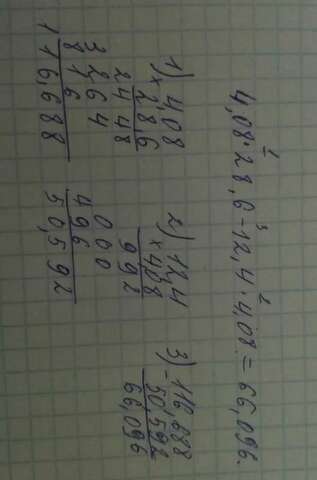 1 3 2
4,08·28,6-12,4·4,08=66,096.
1) 4,08
×28,6
2448
3264
816
116,688
2) 12,4
×4,08
992
000
496
50,592
3) 116,688
-50,592
66,096